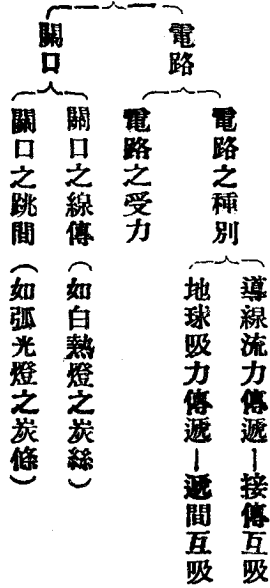 電路
電路之種別
導線流力傳遞—接傳互吸
地球吸力傳遞—遞間互吸
電路之受力
關口
關口之線傳（如白熱燈之炭絲）
關口之跳間（如弧光燈之炭條）